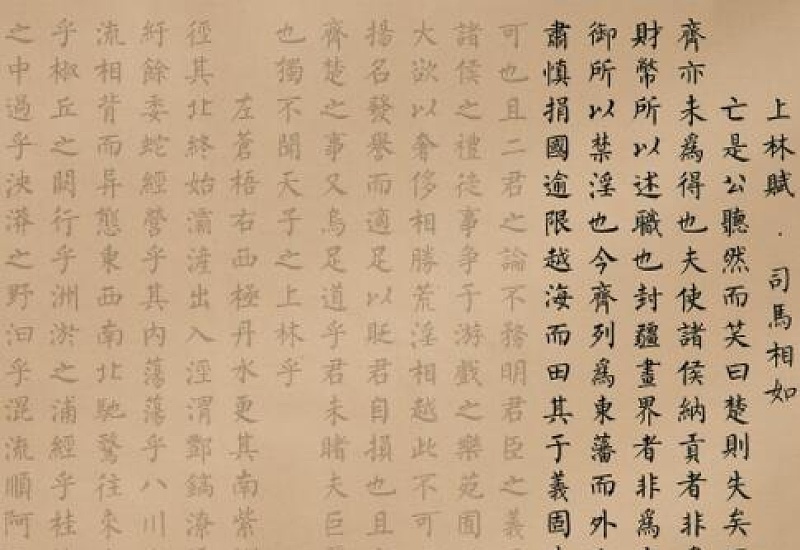 上林賦．司馬相如
亡是公聽然而笑曰楚則失矣
齊亦未為得也夫使諸侯納貢者非
財幣所以述職也封疆畫界者非為
御所以禁淫也今齊列為東藩而外
肅慎捐國逾限越海而田其于義固
可也且二君之論不務明君臣之義
諸侯之禮徒事爭于游戲之樂苑囿
大欲以奢侈相勝荒淫相越此不可
揚名發譽而適足以貶君自損也且
齊楚之事又烏足道乎君未睹夫巨
也獨不聞天子之上林乎
左蒼梧右西極丹水更其南紫
徑其北終始灞滻出入涇渭酆鎬潦
紆餘委蛇經營乎其內蕩蕩乎八川
流相背而異態東西南北馳騖往來
乎椒丘之闕行乎洲淤之浦經乎桂
之中過乎泱漭之野汩乎混流順阿